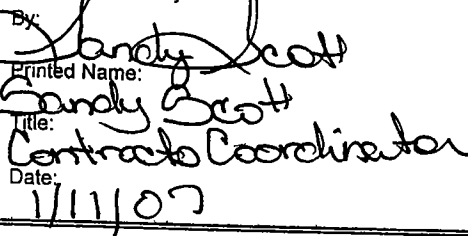 By:
Sandy Scott
Printed Name:
Sandy Scott
Title:
Contracts Coordinator
Date:
1/11/07